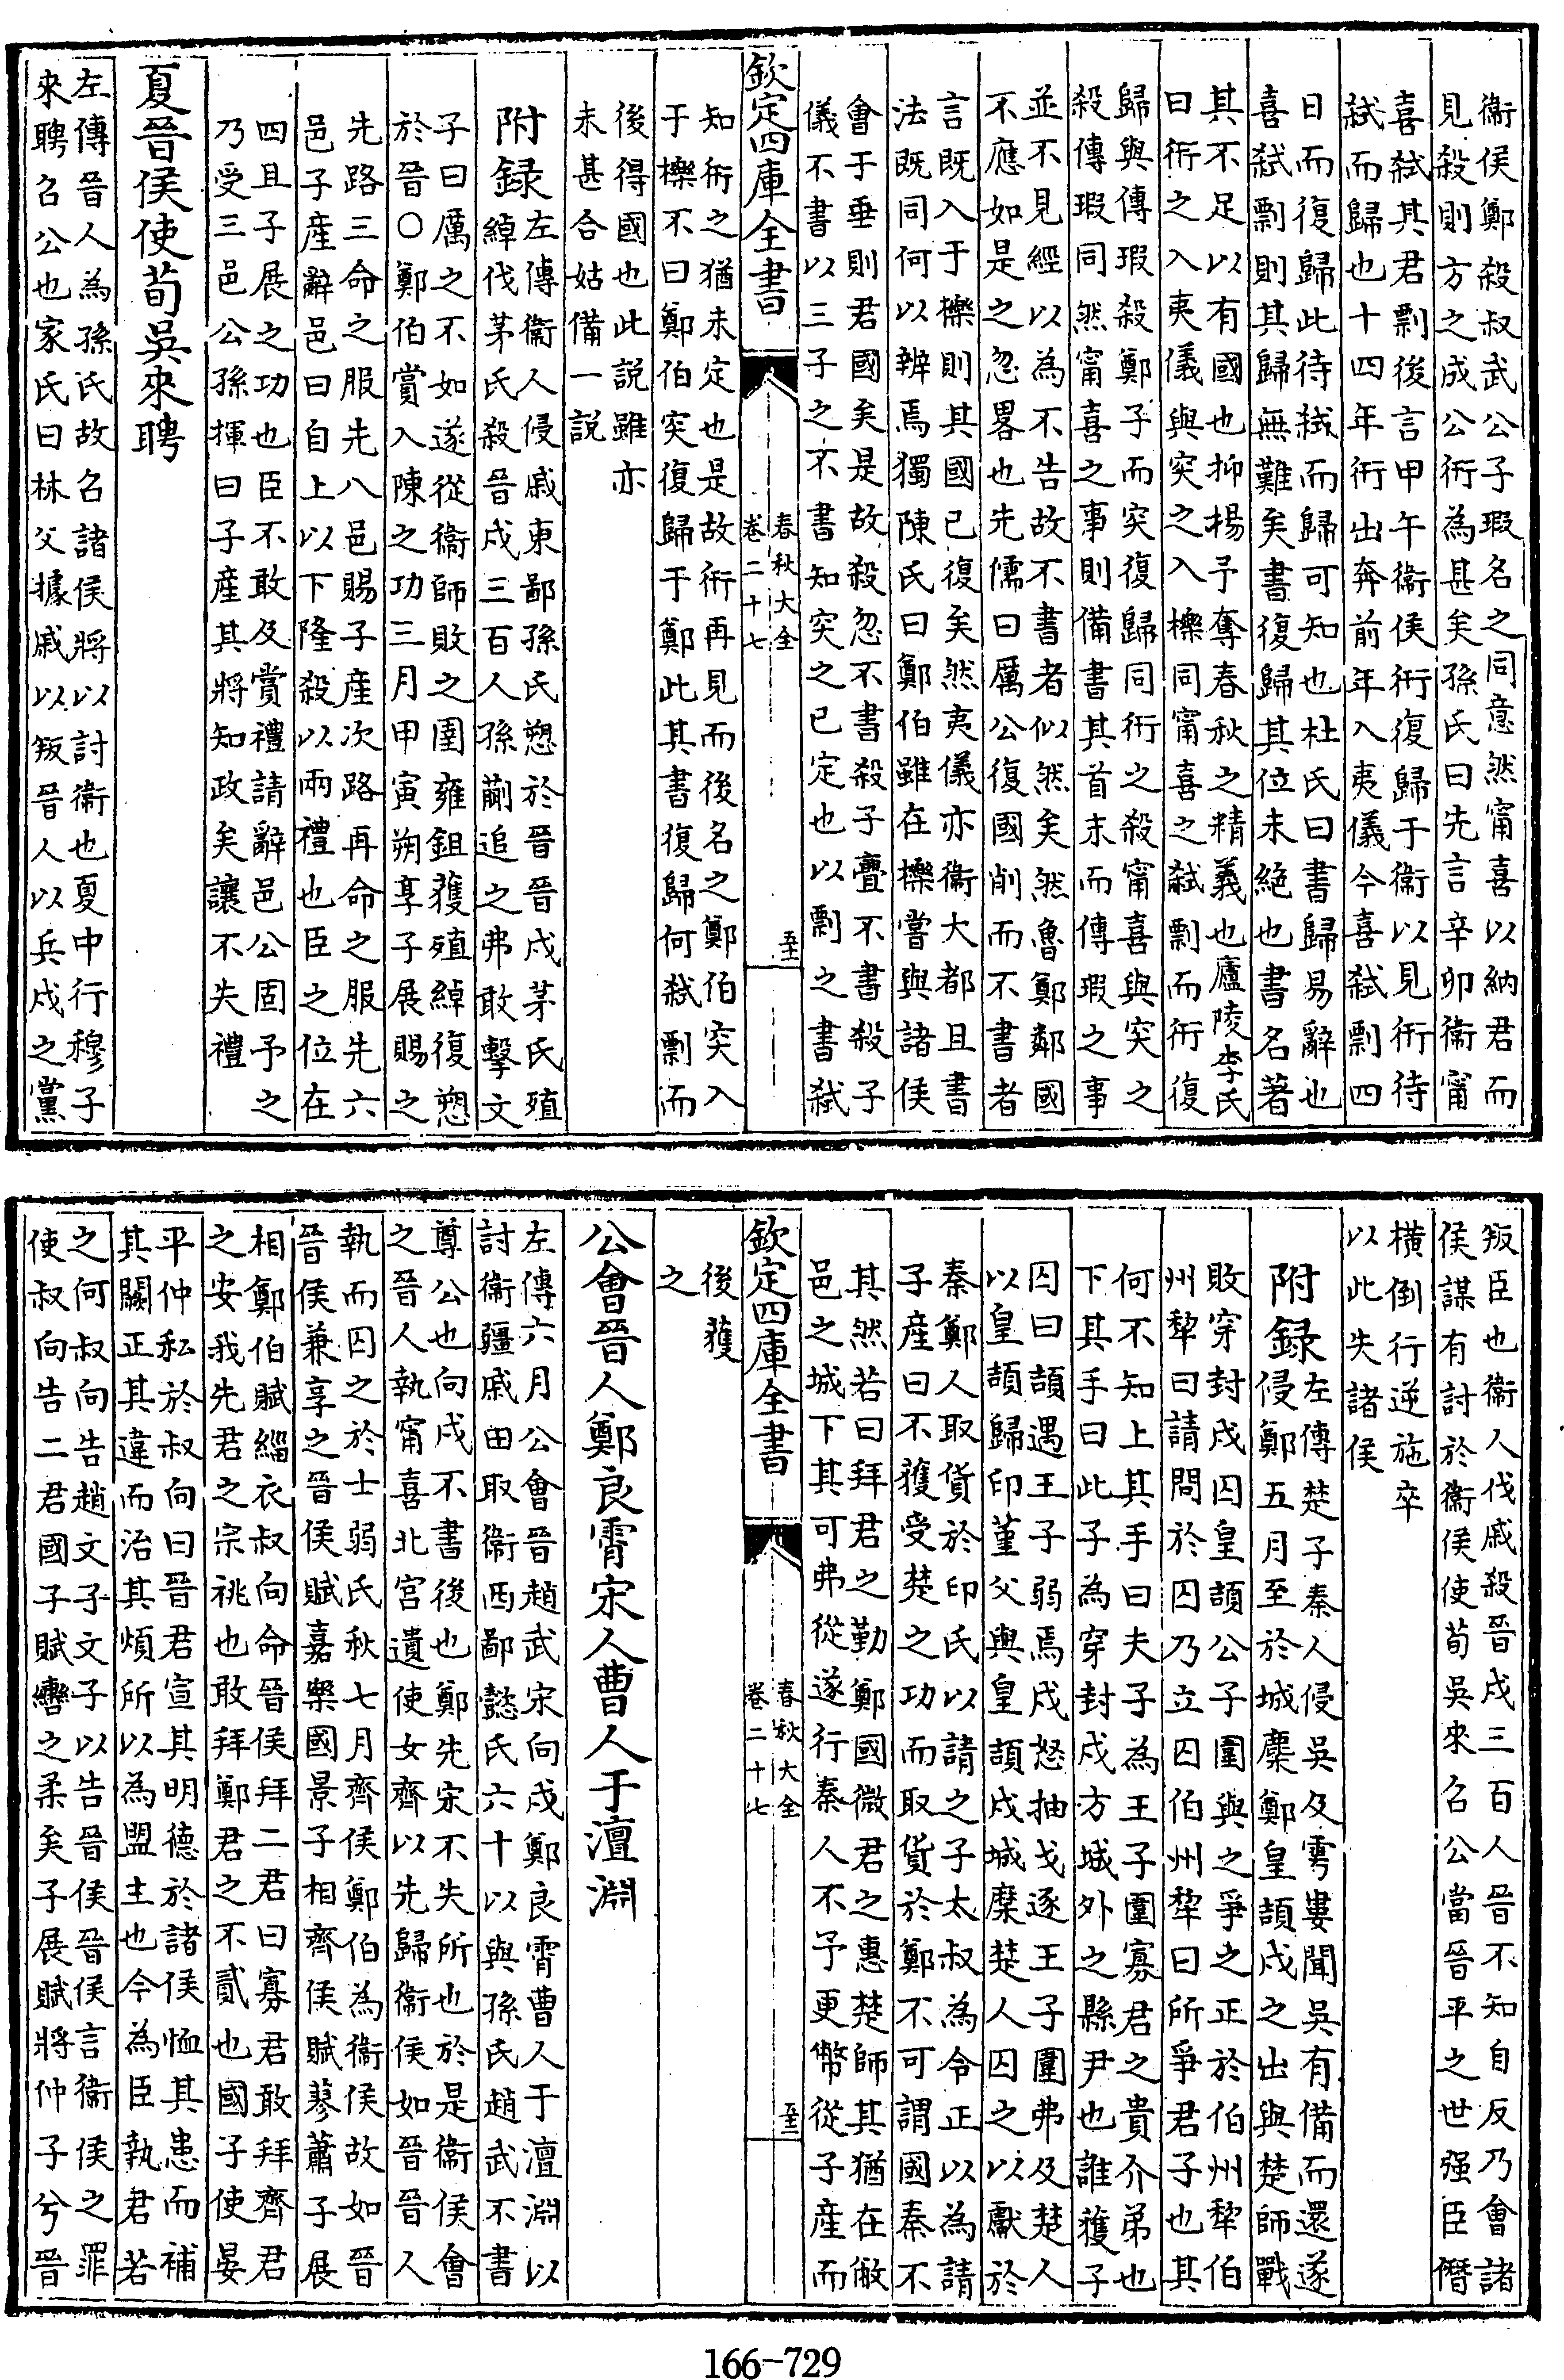 衞侯鄭殺叔武公子瑕名之同意然甯喜以納君而
見殺則方之成公衎為甚矣孫氏曰先言辛卯衞甯
喜弑其君剽後言甲午衞侯衎復歸于衞以見衎待
弑而歸也十四年衎出奔前年入夷儀今喜弑剽四
日而復歸此待弑而歸可知也杜氏曰書歸易辭也
喜弑剽則其歸無難矣書復歸其位未絶也書名著
其不足以有國也抑揚予奪春秋之精義也廬陵李氏
曰衎之入夷儀與突之入櫟同甯喜之弑剽而衎復
歸與傳瑕殺鄭子而突復歸同衎之殺甯喜與突之
殺傳瑕同然甯喜之事則備書其首末而傳瑕之事
並不見經以為不告故不書者似然矣然魯鄭鄰國
不應如是之忽畧也先儒曰厲公復國削而不書者
言既入于櫟則其國已復矣然夷儀亦衞大都且書
法既同何以辨焉獨陳氏曰鄭伯雖在櫟嘗與諸侯
會于垂則君國矣是故殺忽不書殺子亹不書殺子
儀不書以三子之不書知突之已定也以剽之書弑
欽定四庫全書
春秋大全
卷二十七
知衎之猶未定也是故衎再見而後名之鄭伯突入
于櫟不曰鄭伯突復歸于鄭此其書復歸何弑剽而
後得國也此説雖亦
未甚合姑備一説
附録左傳衞人侵戚東鄙孫氏愬於晉晉戍茅氏殖
綽伐茅氏殺晉戍三百人孫蒯追之弗敢擊文
子曰厲之不如遂從衞師敗之圉雍鉏獲殖綽復愬
於晉○鄭伯賞入陳之功三月甲寅朔享子展賜之
先路三命之服先八邑賜子產次路再命之服先六
邑子產辭邑曰自上以下隆殺以兩禮也臣之位在
四且子展之功也臣不敢及賞禮請辭邑公固予之
乃受三邑公孫揮曰子產其將知政矣讓不失禮
夏晉侯使荀吳來聘
左傳晉人為孫氏故名諸侯將以討衞也夏中行穆子
來聘召公也家氏曰林父據戚以叛晉人以兵戍之黨
叛臣也衞人伐戚殺晉戍三百人晉不知自反乃會諸
侯謀有討於衞侯使荀吳來召公當晉平之世强臣僭
橫倒行逆施卒
以此失諸侯
附録左傳楚子秦人侵吳及雩婁聞吳有備而還遂
侵鄭五月至於城麇鄭皇頡戍之出與楚師戰
敗穿封戌囚皇頡公子圍與之爭之正於伯州犂伯
州犂曰請問於囚乃立囚伯州犂曰所爭君子也其
何不知上其手曰夫子為王子圍寡君之貴介弟也
下其手曰此子為穿封戌方城外之縣尹也誰獲子
囚曰頡遇王子弱焉戌怒抽戈逐王子圍弗及楚人
以皇頡歸印堇父與皇頡戍城麇楚人囚之以獻於
秦鄭人取貨於印氏以請之子太叔為令正以為請
子產曰不獲受楚之功而取貨於鄭不可謂國秦不
其然若曰拜君之勤鄭國微君之惠楚師其猶在敝
邑之城下其可弗從遂行秦人不予更幣從子產而
欽定四庫全書
春秋大全
卷二十七
後獲
之
公會晉人鄭良霄宋人曹人于澶淵
左傳六月公會晉趙武宋向戌鄭良霄曹人于澶淵以
討衞疆戚田取衞西鄙懿氏六十以與孫氏趙武不書
尊公也向戌不書後也鄭先宋不失所也於是衞侯會
之晉人執甯喜北宫遺使女齊以先歸衞侯如晉晉人
執而囚之於士弱氏秋七月齊侯鄭伯為衞侯故如晉
晉侯兼享之晉侯賦嘉樂國景子相齊侯賦蓼蕭子展
相鄭伯賦緇衣叔向命晉侯拜二君曰寡君敢拜齊君
之安我先君之宗祧也敢拜鄭君之不貳也國子使晏
平仲私於叔向曰晉君宣其明德於諸侯恤其患而補
其闕正其違而治其煩所以為盟主也今為臣執君若
之何叔向告趙文子文子以告晉侯晉侯言衞侯之罪
使叔向告二君國子賦轡之柔矣子展賦將仲子兮晉
166-729